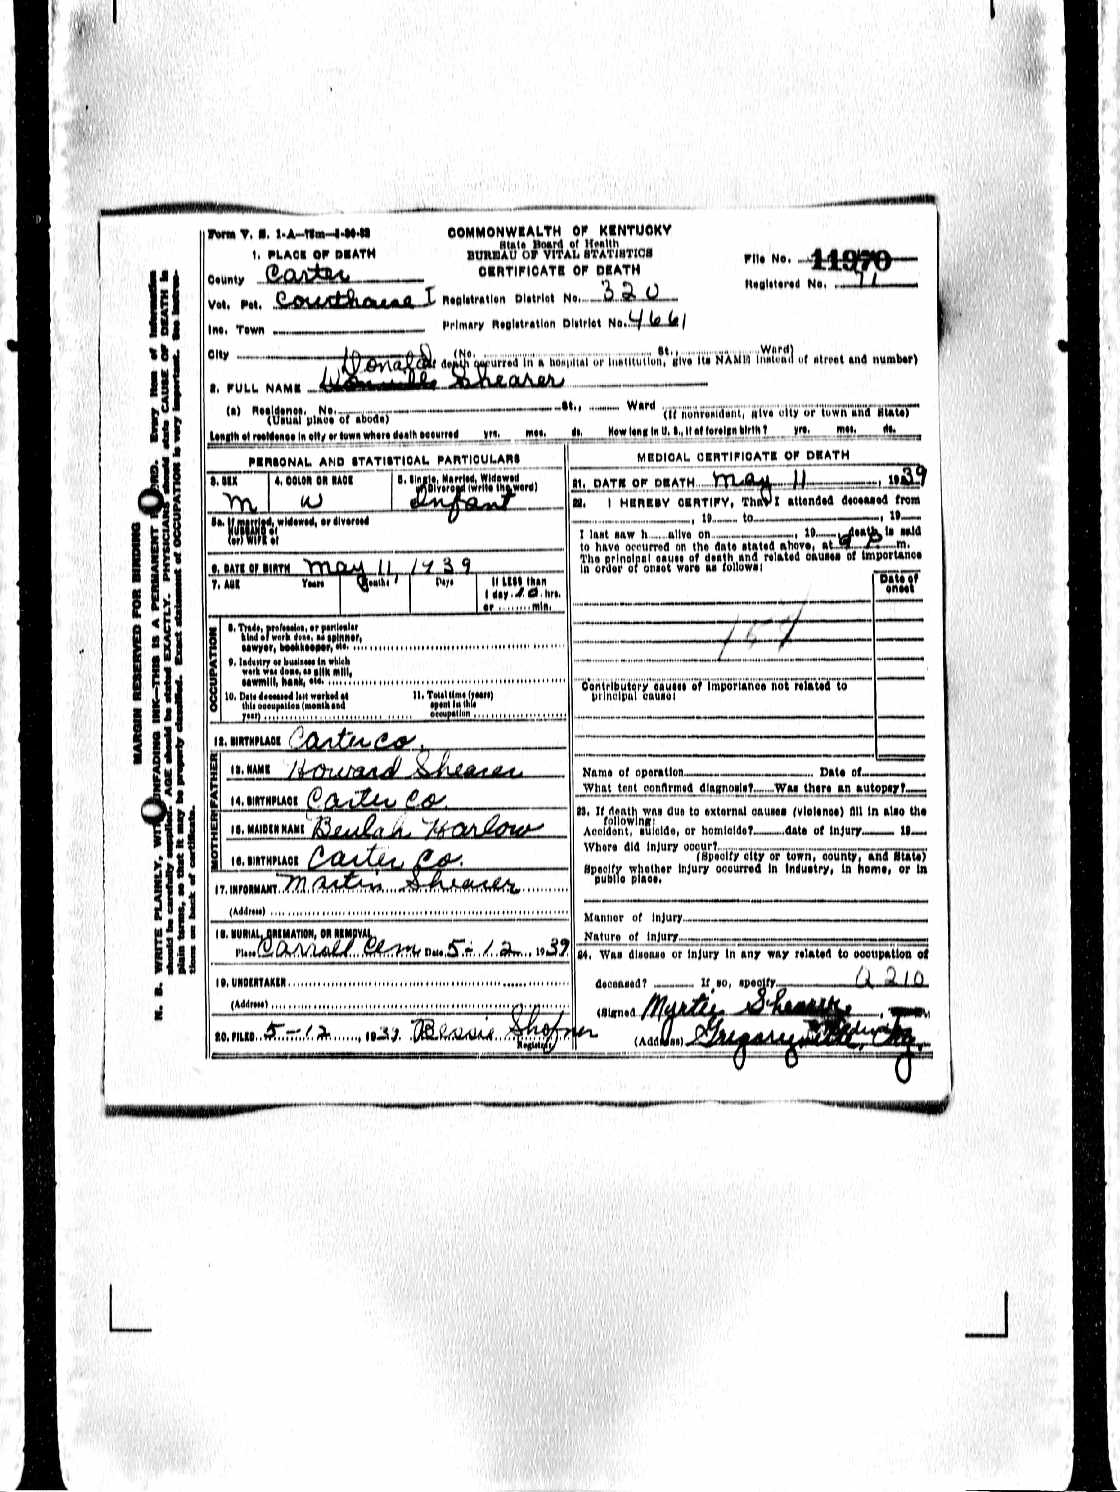 Form V. S. 1-A—75m—
COMMONWEALTH OF KENTUCKY
State Board of Health
BUREAU OF VITAL STATISTICS
CERTIFICATE OF DEATH
File No. 11970
Registered No. 91
1. PLACE OF DEATH
County Carter
Vot. Pct. Courthouse I Registration District No. 320
Inc. Town Primary Registration District No. 4661
City (No. St., Ward)
death occurred in a hospital or institution, give its NAME instead of street and number)
2. FULL NAME Donald Shearer
(a) Residence. No. St., Ward
(Usual place of abode) (If nonresident, give city or town and State)
Length of residence in city or town where death occurred yrs. mos. ds. How long in U. S., if of foreign birth? yrs. mos. ds.
PERSONAL AND STATISTICAL PARTICULARS
3. SEX 4. COLOR OR RACE 5. Single, Married, Widowed
or Divorced (write the word)
M W Infant
5a. If married, widowed, or divorced
HUSBAND of
(or) WIFE of
6. DATE OF BIRTH May 11, 1939
7. AGE Years Months Days If LESS than
1 day 10 hrs.
or min.
OCCUPATION
8. Trade, profession, or particular
kind of work done, as spinner,
sawyer, bookkeeper, etc.
9. Industry or business in which
work was done, as silk mill,
sawmill, bank, etc.
10. Date deceased last worked at
this occupation (month and
year)
11. Total time (years)
spent in this
occupation
12. BIRTHPLACE Carter Co.
FATHER
13. NAME Howard Shearer
14. BIRTHPLACE Carter Co.
MOTHER
15. MAIDEN NAME Beulah Harlow
16. BIRTHPLACE Carter Co.
17. INFORMANT Martin Shearer
(Address)
18. BURIAL, CREMATION, OR REMOVAL
Place Carroll Cem Date 5-12, 1939
19. UNDERTAKER
(Address)
20. FILED 5-12, 1939. Bessie Shofner
Registrar
MEDICAL CERTIFICATE OF DEATH
21. DATE OF DEATH May 11, 1939
22. I HEREBY CERTIFY, That I attended deceased from
, 19 to , 19
I last saw h alive on , 19 death is said
to have occurred on the date stated above, at 6 P m.
The principal cause of death and related causes of importance
in order of onset were as follows:
Date of
onset
Contributory causes of importance not related to
principal cause:
Name of operation Date of
What test confirmed diagnosis? Was there an autopsy?
23. If death was due to external causes (violence) fill in also the
following:
Accident, suicide, or homicide? date of injury 19
Where did injury occur?
(Specify city or town, county, and State)
Specify whether injury occurred in industry, in home, or in
public place.
Manner of injury
Nature of injury
24. Was disease or injury in any way related to occupation of
deceased? If so, specify Q 210
(Signed Myrtie Shearer
(Address) Gregoryville, Ky.
MARGIN RESERVED FOR BINDING
N. B. WRITE PLAINLY, WITH UNFADING INK—THIS IS A PERMANENT RECORD. Every item of information
should be carefully supplied. AGE should be stated EXACTLY. PHYSICIANS should state CAUSE OF DEATH in
plain terms, so that it may be properly classified. Exact statement of OCCUPATION is very important. See instruc-
tions on back of certificate.